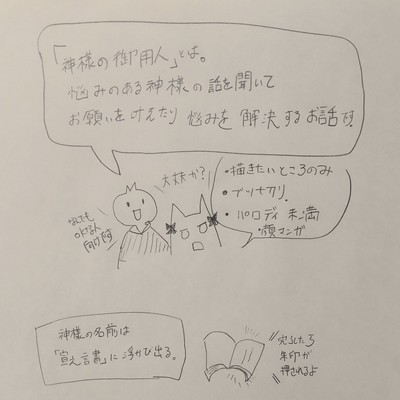 「神様の御用人」とは。
悩みのある神様の話を聞いて
お願いを叶えたり 悩みを 解決するお話です。
大丈夫か?
・描きたいところのみ
・ブツ切り
・パロディ 未満
・顔マンガ
なんでも
神様の名前は
「宣之言書」に浮かび出る。
完了したら
朱印が
押されるよ